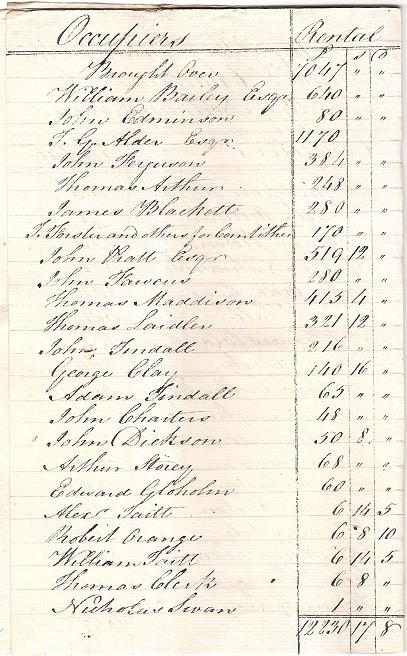 Occupiers Rental
£ s D
Brought Over 7047 " "
William Bailey Esqr 640 " "
John Edminson 80 " "
T. G. Alder Esqr 1170
John Ferguson 384 " "
Thomas Arthur 248 " "
James Blackett 280 " "
T. Forster and others for Corn tithes 170 " "
John Pratt Esqr 519 12 "
John Fawcus 280 " "
Thomas Maddison 415 4 "
Thomas Laidler 321 12 "
John Tindall 216 " "
George Clay 140 16 "
Adam Tindall 65 " "
John Charters 48 " "
John Dickson 50 8 "
Arthur Storey 68 " "
Edward Gloholm 60 " "
Alexr Taitt 6 14 5
Robert Orange 6 8 10
William Taitt 6 14 5
Thomas Clerk 6 8 "
Nicholas Swan 1 " "
12230 17 8